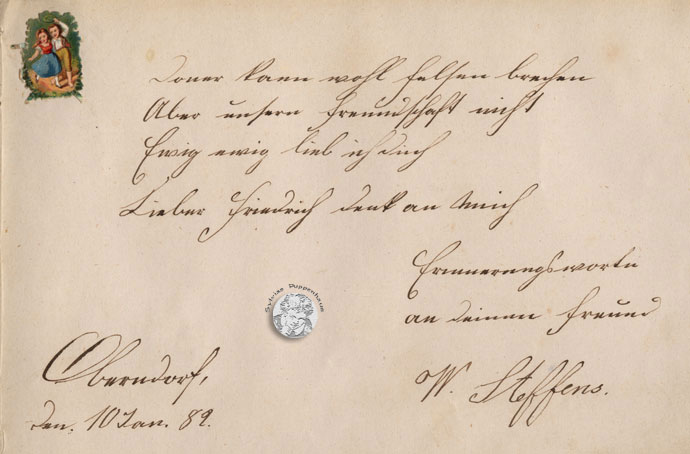 Doner kann wohl felsen brechen
Aber unsern Freundschaft nicht
Ewig ewig lieb ich dich
Lieber Friedrich denk an Mich
Erinnerungsworte
an deinen Freund
W. Steffens.
Oberndorf,
den. 10 Jan. 89.
Sylvias Puppenhaus